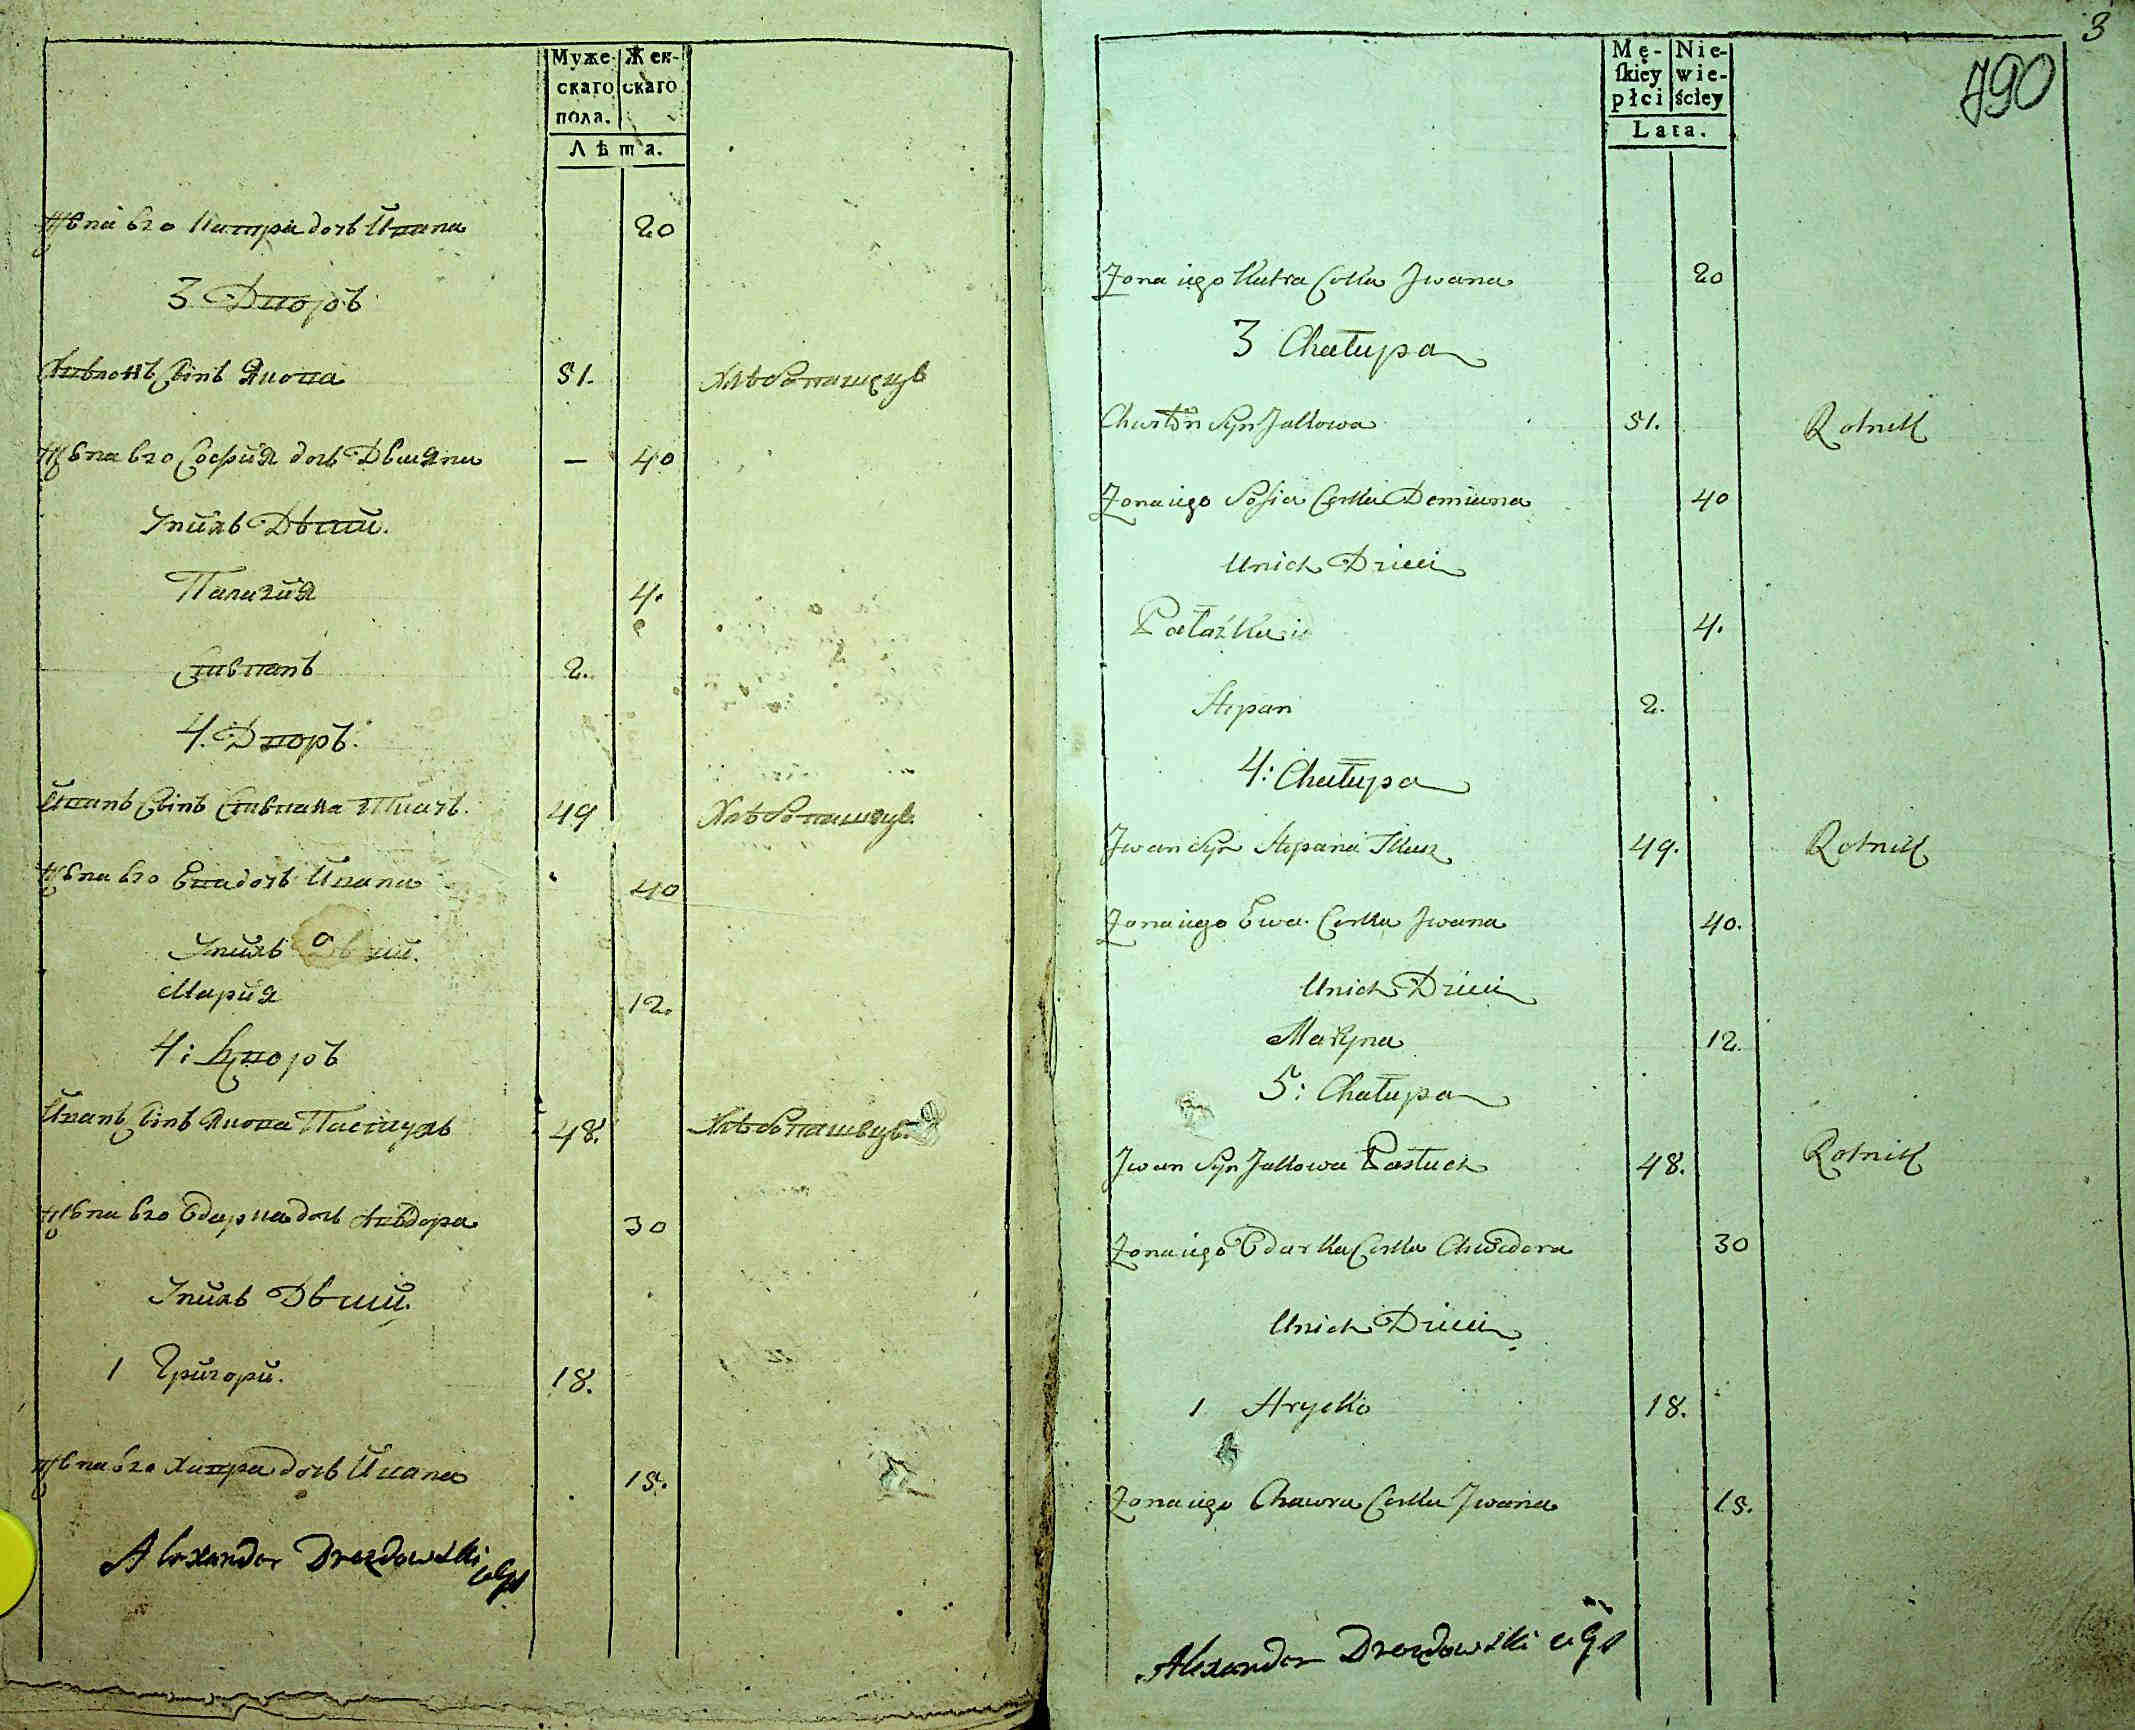 Муже-
скаго
пола.
Жен-
скаго
Лѣта.
Жена его Катра дочь Ивана 20
3 Дворъ
Хведонъ Синъ Якова 51. Хлебопашецъ
Жена его София дочь Демяна — 40
У нихъ Дети.
Палагия 4.
Степанъ 2.
4. Дворъ.
Иванъ Синъ Степана Ткачъ. 49 Хлебопашецъ
Жена его Ева дочь Ивана 40
У нихъ Дети.
Мария 12.
4: Дворъ
Иванъ Синъ Якова Пастухъ 48. Хлебопашецъ.
Жена его Едарка дочь Хведора 30
У нихъ Дети.
1 Григори. 18.
Жена его Хавра дочь Ивана 15.
Alexander Drozdowski
3
790
Mę-
ſkiey
płci
Nie-
wie-
ściey
Lata.
Zona iego Katra Corka Jwana 20
3 Chałupa
Syn Jakowa 51. Rolnik
Zona iego Sosia Corka Demiana 40
Unich Dzieci
Pałazka 4.
Stepan 2.
4: Chałupa
Jwan Syn Stepana Tkacz 49. Rolnik
Zona iego Ewa Corka Jwana 40.
Unich Dzieci
Maryna 12.
5: Chałupa
Jwan Syn Jakowa Pastuch 48. Rolnik
Zona iego Odarka Corka Chwedora 30
Unich Dzieci
1 Hrycko 18.
Zona iego Chawra Corka Jwana 15.
Alexander Drozdowski